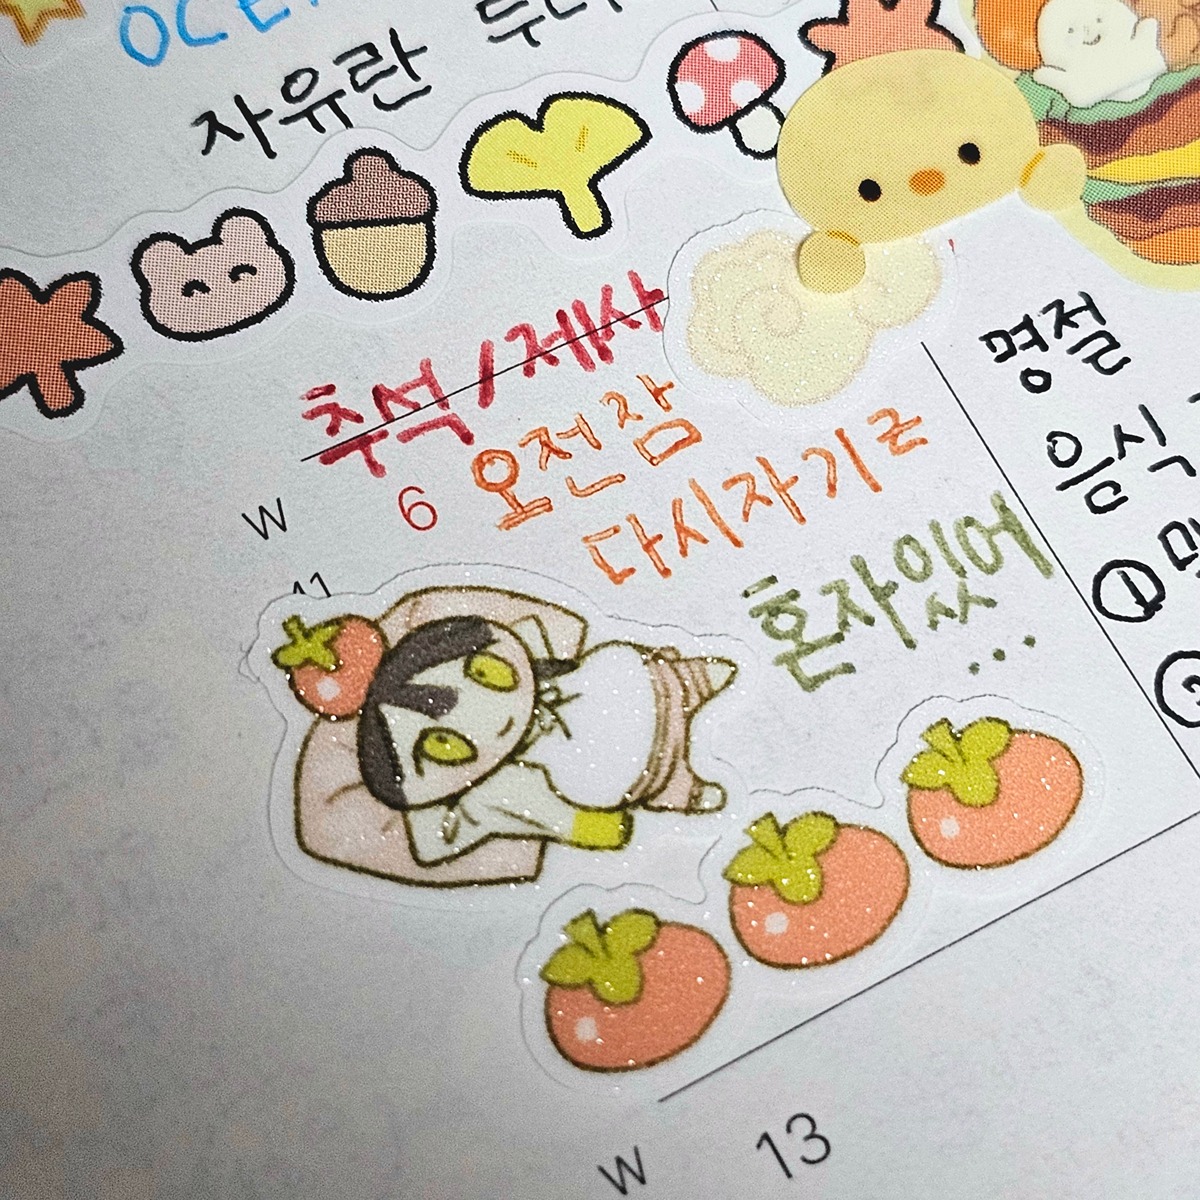 자유란
추석/제사
W 6 오전잠
다시자기ㄹ
혼자있어
...
명절
음식
①
②
W 13